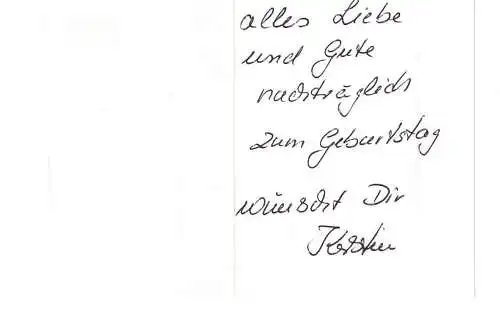 alles Liebe
und Gute
nachträglich
zum Geburtstag
wünscht Dir
Kerstin